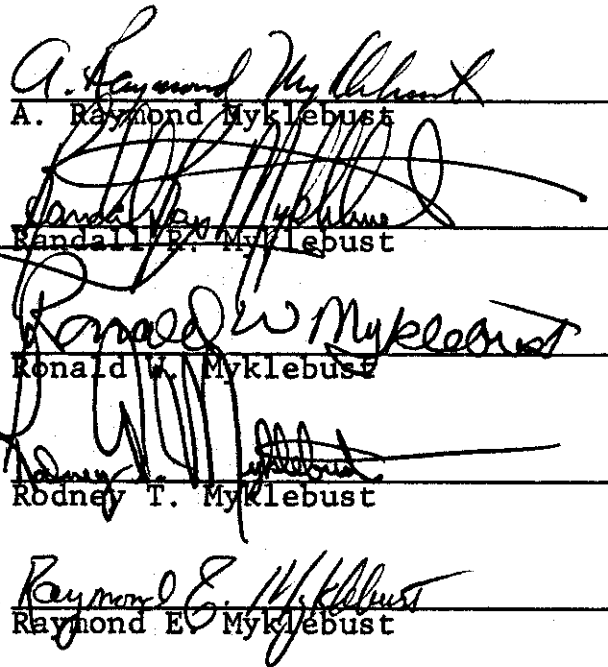 A. Raymond Myklebust
A. Raymond Myklebust
Randall R. Myklebust
Ronald W Myklebust
Ronald W. Myklebust
Rodney T. Myklebust
Rodney T. Myklebust
Raymond E. Myklebust
Raymond E. Myklebust